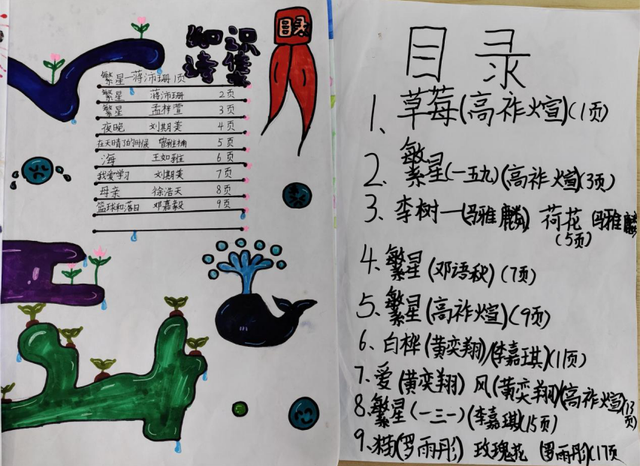 知识
诗集
目录
繁星一蒋沛珊1页
繁星 蒋沛珊 2页
繁星 孟梓萱 3页
夜晚 刘期美 4页
在天晴了的时候 5页
海 王如雅 6页
我爱学习 刘期美 7页
母亲 徐浩天 8页
篮球和落日 邓嘉毅 9页
目录
1、草莓(高祚煊)(1页)
2、繁星(一五九)(高祚煊)(3页)
3、李树一(雅麟) 荷花 雅麟
(5页)
4、繁星(邓语秋)(7页)
5、繁星(高祚煊)(9页)
6、白桦(黄奕翔)(李嘉琪)(11页)
7、爱(黄奕翔) 风(黄奕翔)(高祚煊)(13页)
8、繁星(一三一)(李嘉琪)(15页)
9、(罗雨彤) 玫瑰花 (罗雨彤)(17页